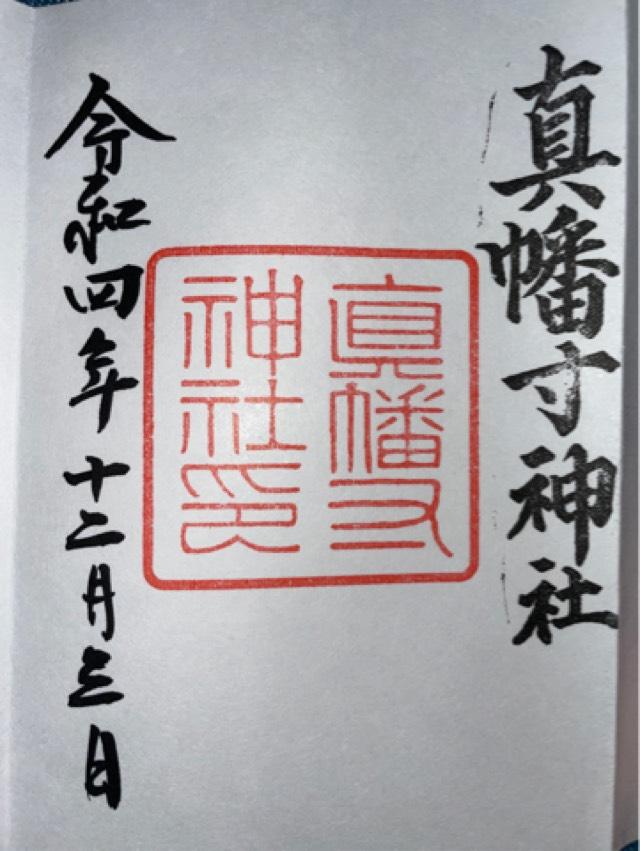 真幡寸神社
真幡寸
神社印
令和四年十二月三日